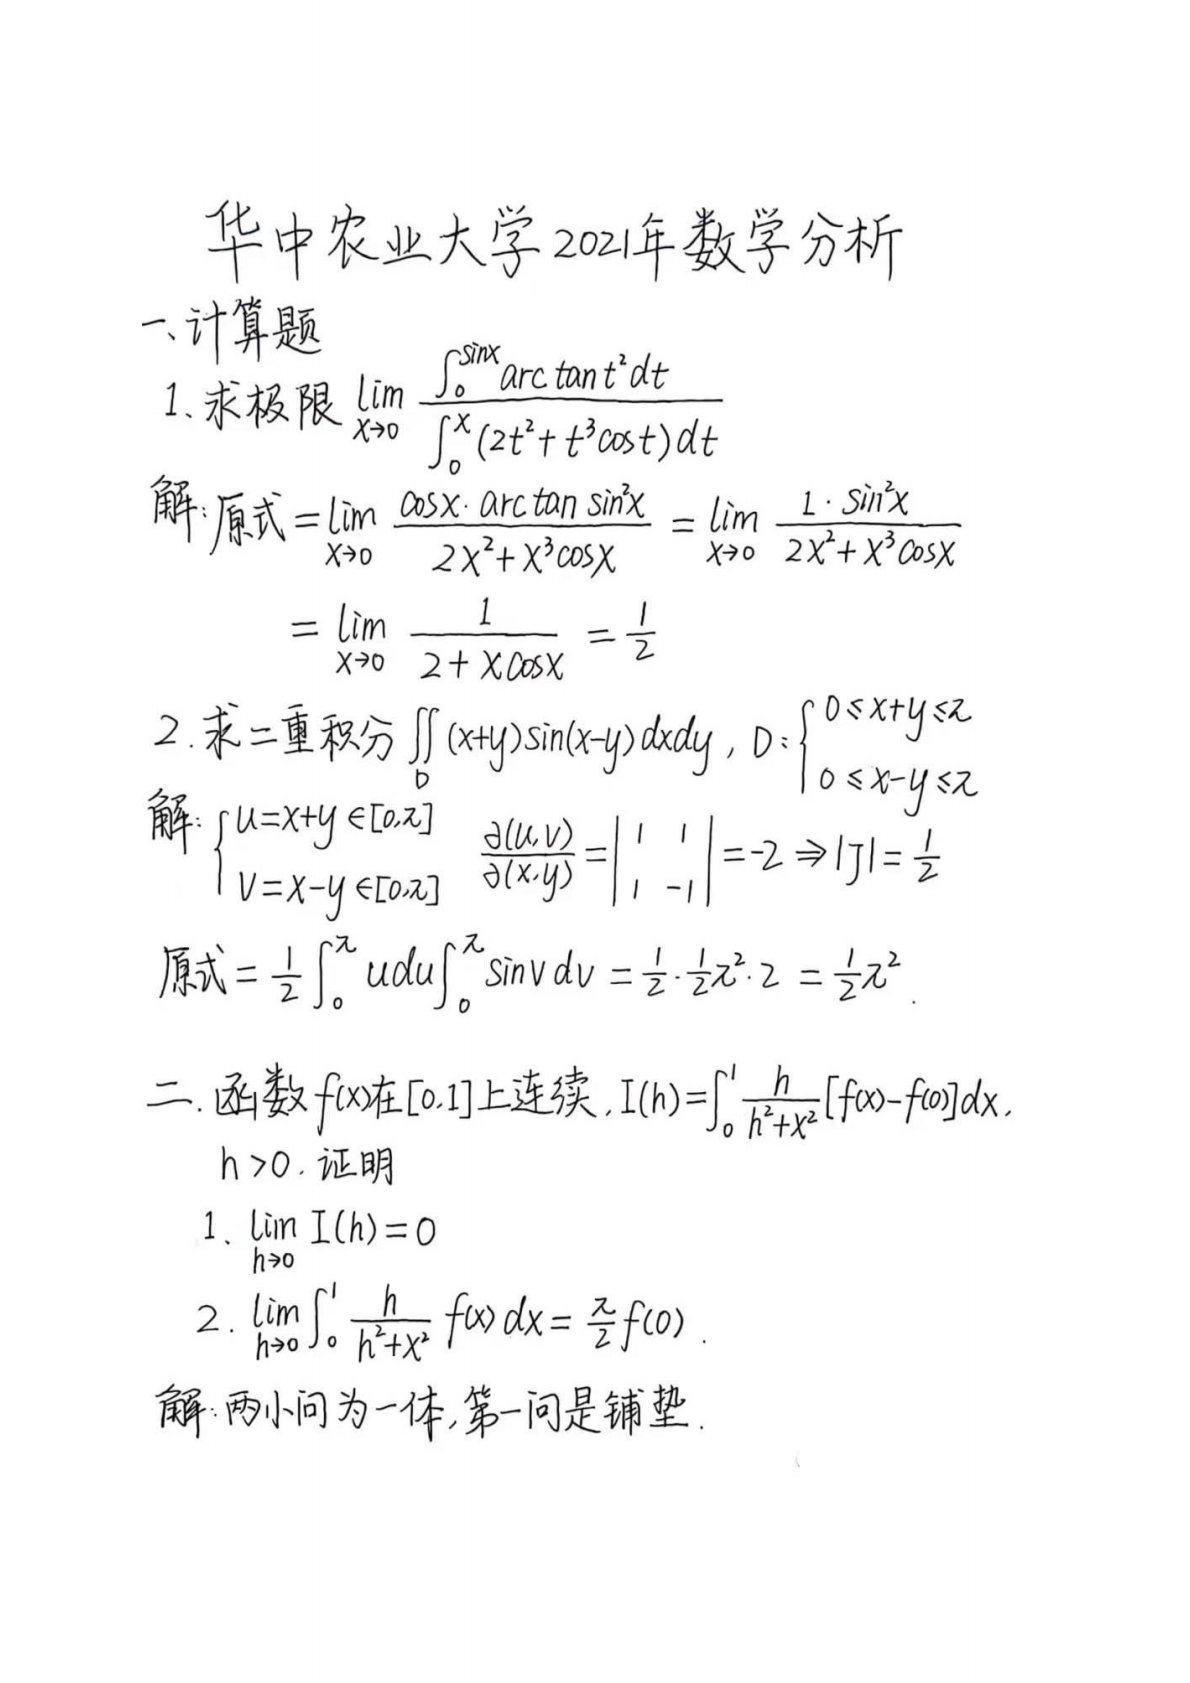 华中农业大学2021年数学分析
一、计算题
1、求极限 lim_{x→0} \frac{∫_0^{sinx} arctant²dt}{∫_0^x (2t²+t³cost)dt}
解:原式=lim_{x→0} \frac{cosx·arctan sin²x}{2x²+x³cosx} = lim_{x→0} \frac{1·sin²x}{2x²+x³cosx}
= lim_{x→0} \frac{1}{2+xcosx} = \frac{1}{2}
2.求二重积分∬_D (x+y)sin(x-y)dxdy, D:{0≤x+y≤π
0≤x-y≤π
解:{u=x+y∈[0,π]
v=x-y∈[0,π] \frac{∂(u,v)}{∂(x,y)}=|1 1; 1 -1|=-2⇒|J|=\frac{1}{2}
原式=\frac{1}{2}∫_0^π udu∫_0^π sinvdv=\frac{1}{2}·\frac{1}{2}π²·2=\frac{1}{2}π².
二.函数f(x)在[0,1]上连续,I(h)=∫_0^1 \frac{h}{h²+x²}[f(x)-f(0)]dx,
h>0.证明
1、lim_{h→0} I(h)=0
2. lim_{h→0}∫_0^1 \frac{h}{h²+x²} f(x)dx=\frac{π}{2}f(0).
解:两小问为一体,第一问是铺垫.